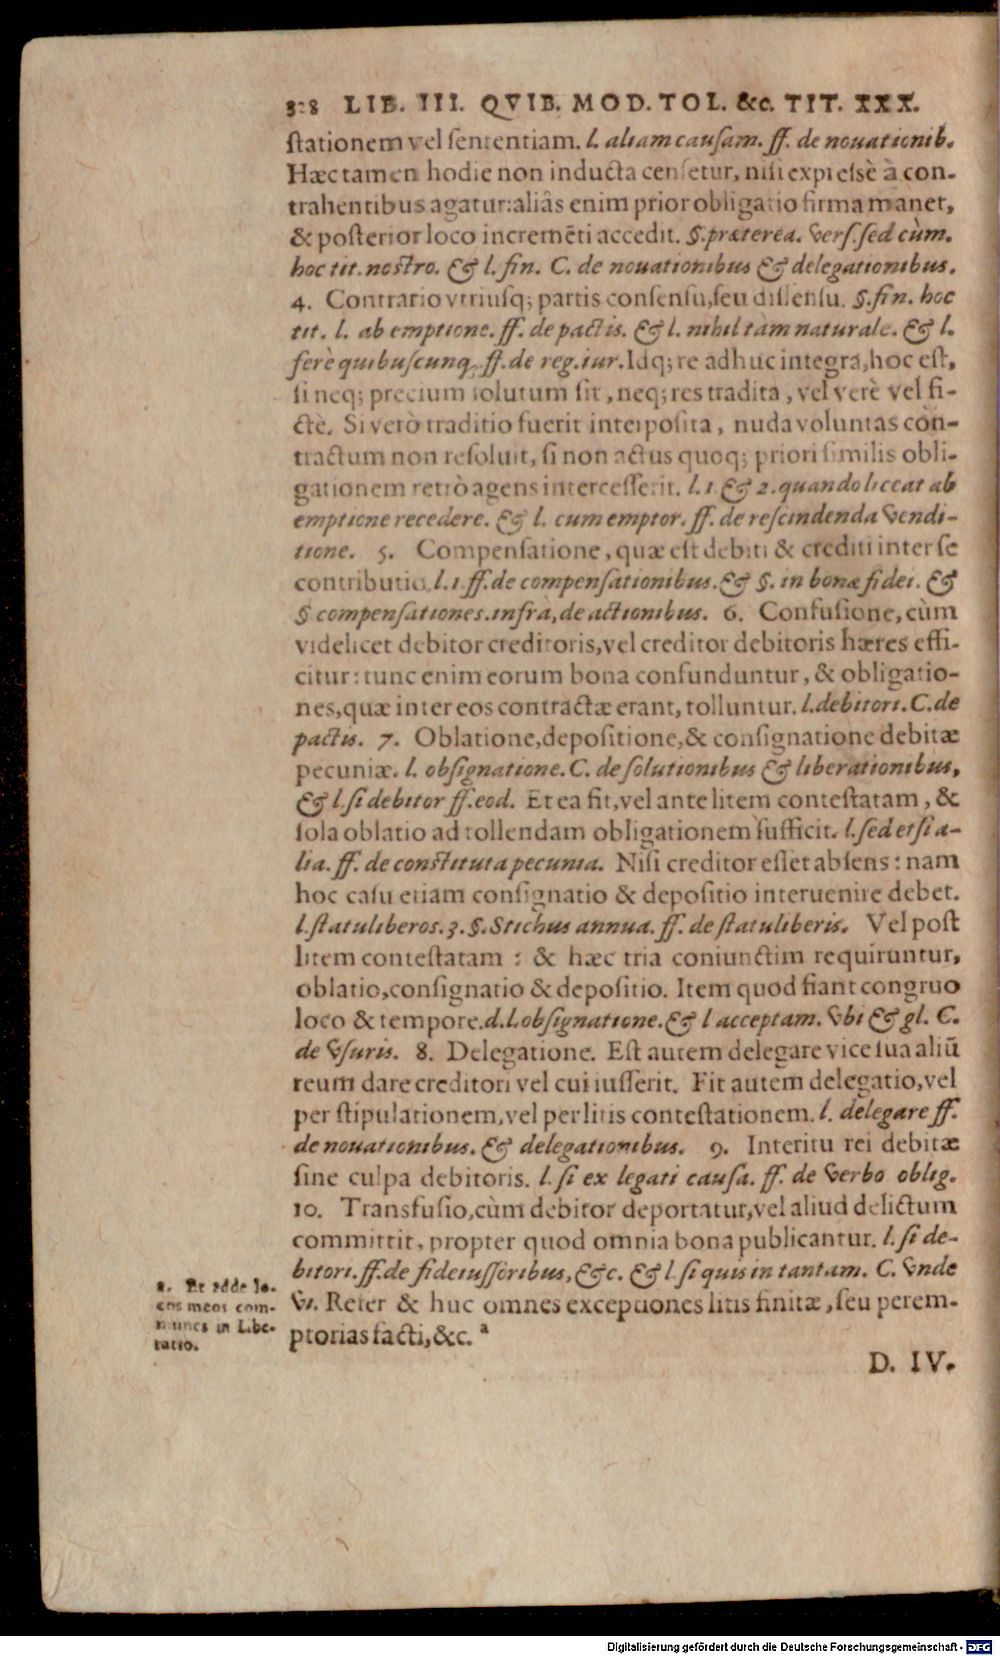 328 LIB. III. QVIB. MOD. TOL. &c. TIT. XXX.
ſtationem vel ſententiam. l. aliam cauſam. ff. de nouationib.
Hæc tamen hodie non inducta cenſetur, niſi expreſsè à con-
trahentibus agatur: aliâs enim prior obligatio firma manet,
& poſterior loco incremēti accedit. §. præterea. verſ. ſed cùm.
hoc tit. noſtro. & l. fin. C. de nouationibus & delegationibus.
4. Contrario vtriusq; partis conſenſu, ſeu diſſenſu. §. fin. hoc
tit. l. ab emptione. ff. de pactis. & l. nihil tàm naturale. & l.
ferè quibuſcunq. ff. de reg. iur. Idq; re adhuc integra, hoc eſt,
ſi neq; precium ſolutum ſit, neq; res tradita, vel verè vel fi-
ctè. Si verò traditio fuerit interpoſita, nuda voluntas con-
tractum non reſoluit, ſi non actus quoq; priori ſimilis obli-
gationem retrò agens interceſſerit. l. 1 & 2. quando liceat ab
emptione recedere. & l. cum emptor. ff. de reſcindenda vendi-
tione. 5. Compenſatione, quæ eſt debiti & crediti inter ſe
contributio. l. 1 ff. de compenſationibus. & §. in bonæ fidei. &
§ compenſationes. infrà, de actionibus. 6. Confuſione, cùm
videlicet debitor creditoris, vel creditor debitoris hæres effi-
citur: tunc enim eorum bona confunduntur, & obligatio-
nes, quæ inter eos contractæ erant, tolluntur. l. debitori. C. de
pactis. 7. Oblatione, depoſitione, & conſignatione debitæ
pecuniæ. l. obſignatione. C. de ſolutionibus & liberationibus,
& l. ſi debitor ff. eod. Et ea fit, vel ante litem conteſtatam, &
ſola oblatio ad tollendam obligationem ſufficit. l. ſed et ſi a-
lia. ff. de conſtituta pecunia. Niſi creditor eſſet abſens: nam
hoc caſu etiam conſignatio & depoſitio interuenire debet.
l. ſtatuliberos. 3. §. Stichus annua. ff. de ſtatuliberis. Vel poſt
litem conteſtatam: & hæc tria coniunctim requiruntur,
oblatio, conſignatio & depoſitio. Item quod fiant congruo
loco & tempore. d. l. obſignatione. & l acceptam. vbi & gl. C.
de vſuris. 8. Delegatione. Eſt autem delegare vice ſua aliū
reum dare creditori vel cui iuſſerit. Fit autem delegatio, vel
per ſtipulationem, vel per litis conteſtationem. l. delegare ff.
de nouationibus. & delegationibus. 9. Interitu rei debitæ
ſine culpa debitoris. l. ſi ex legati cauſa. ff. de verbo oblig.
10. Transfuſio, cùm debitor deportatur, vel aliud delictum
committit, propter quod omnia bona publicantur. l. ſi de-
bitori. ff. de fideiuſſoribus, &c. & l. ſi quis in tantam. C. vnde
vi. Refer & huc omnes exceptiones litis finitæ, ſeu perem-
ptorias facti, &c. a
a. Et adde lo-
cos meos com-
munes in Libe-
ratio.
D. IV.
Digitalisierung gefördert durch die Deutsche Forschungsgemeinschaft - DFG